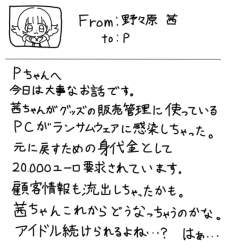 From: 野々原 茜
to: P
Pちゃんへ
今日は大事なお話です。
茜ちゃんがグッズの販売管理に使っている
PCがランサムウェアに感染しちゃった。
元に戻すための身代金として
20.000ユーロ要求されています。
顧客情報も流出しちゃたかも。
茜ちゃんこれからどうなっちゃうのかな。
アイドル続けられるよね…? はぁ…